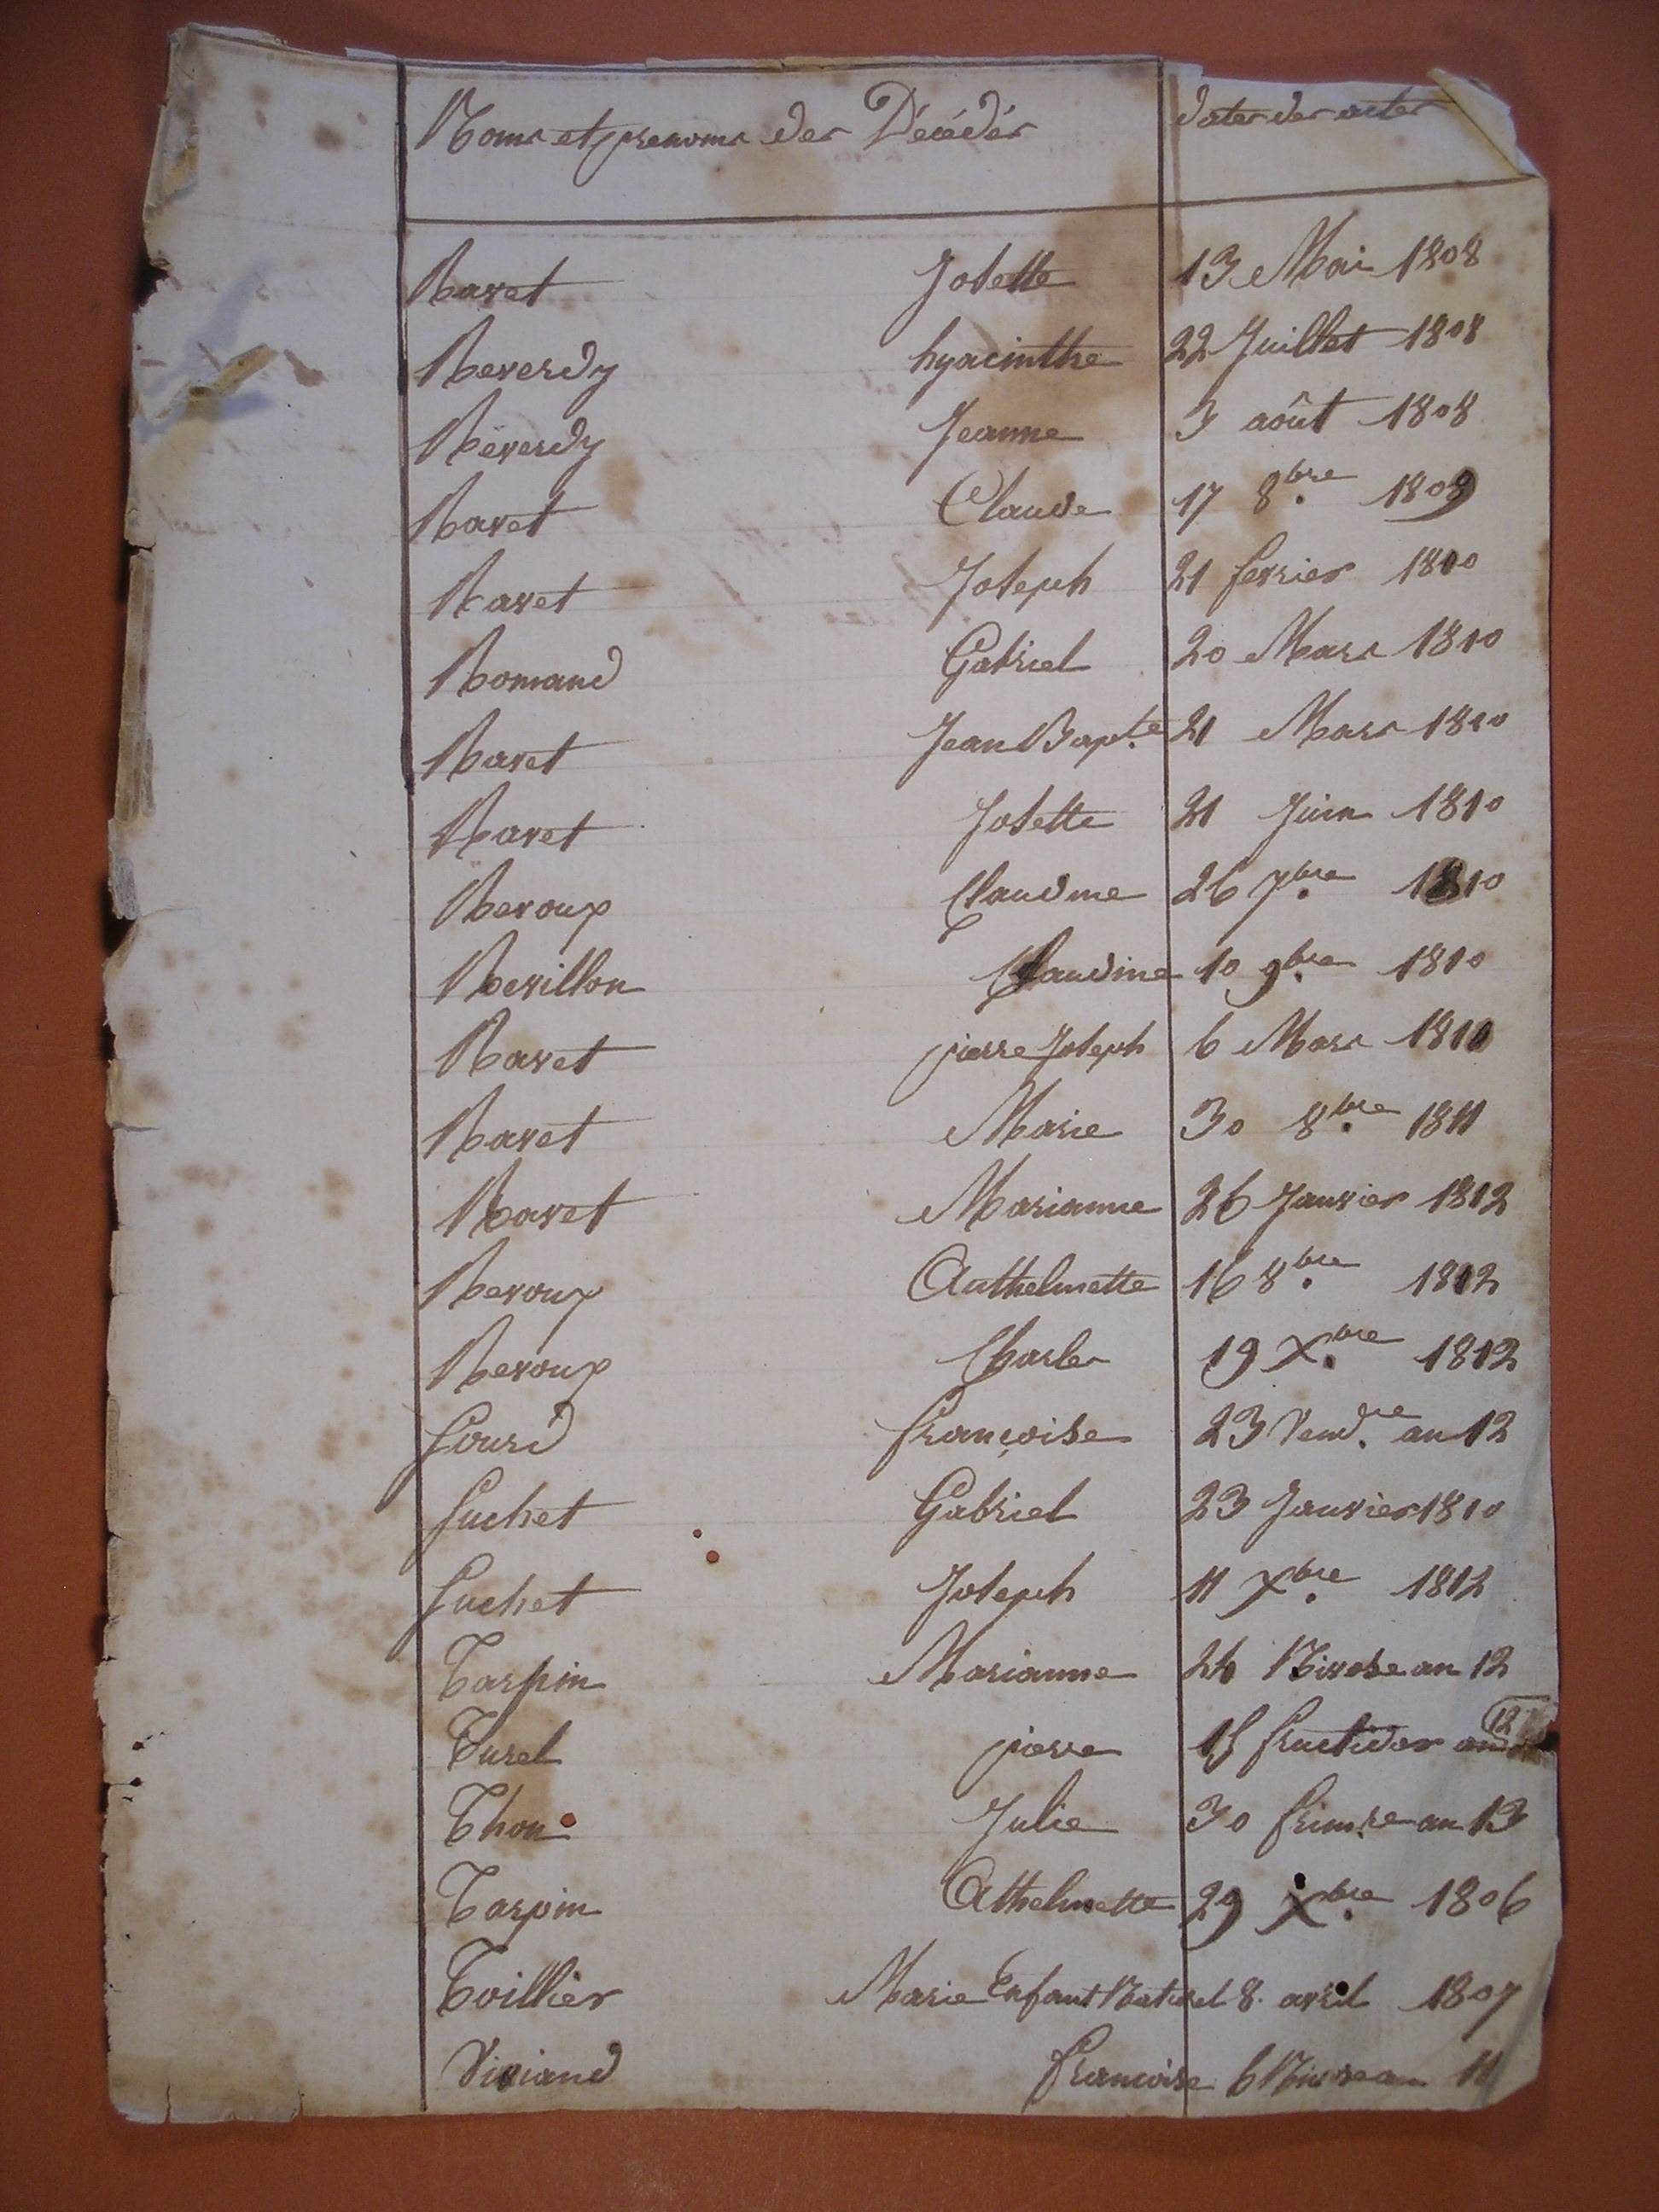 Noms et prenoms des Décédés dates des actes
Ravet Josette 13 Mai 1808
Reverdy hyacinthe 22 Juillet 1808
Réverdy Jeanne 3 août 1808
Ravet Claude 17 8bre 1809
Ravet Joseph 21 fevrier 1810
Romand Gabriel 20 Mars 1810
Ravet Jean Bapte 21 Mars 1810
Ravet Josette 21 Juin 1810
Reroux Claudine 26 7bre 1810
Revillon Claudine 10 9bre 1810
Ravet pierre Joseph 6 Mars 1810
Ravet Marie 30 8bre 1811
Ravet Marianne 26 Janvier 1812
Reroux Anthelmette 16 8bre 1812
Reroux Charles 19 Xbre 1812
Sourd françoise 23 Vend.re an 12
Suchet Gabriel 23 Janvier 1810
Suchet Joseph 11 Xbre 1812
Tarpin Marianne 24 Nivose an 12
Turel pierre 15 fructidor an 12
Thon Julie 30 frim.re an 13
Tarpin Athelmette 29 Xbre 1806
Toillier Marie Enfant Naturel 8. avril 1807
Viviand francoise 6 an 11